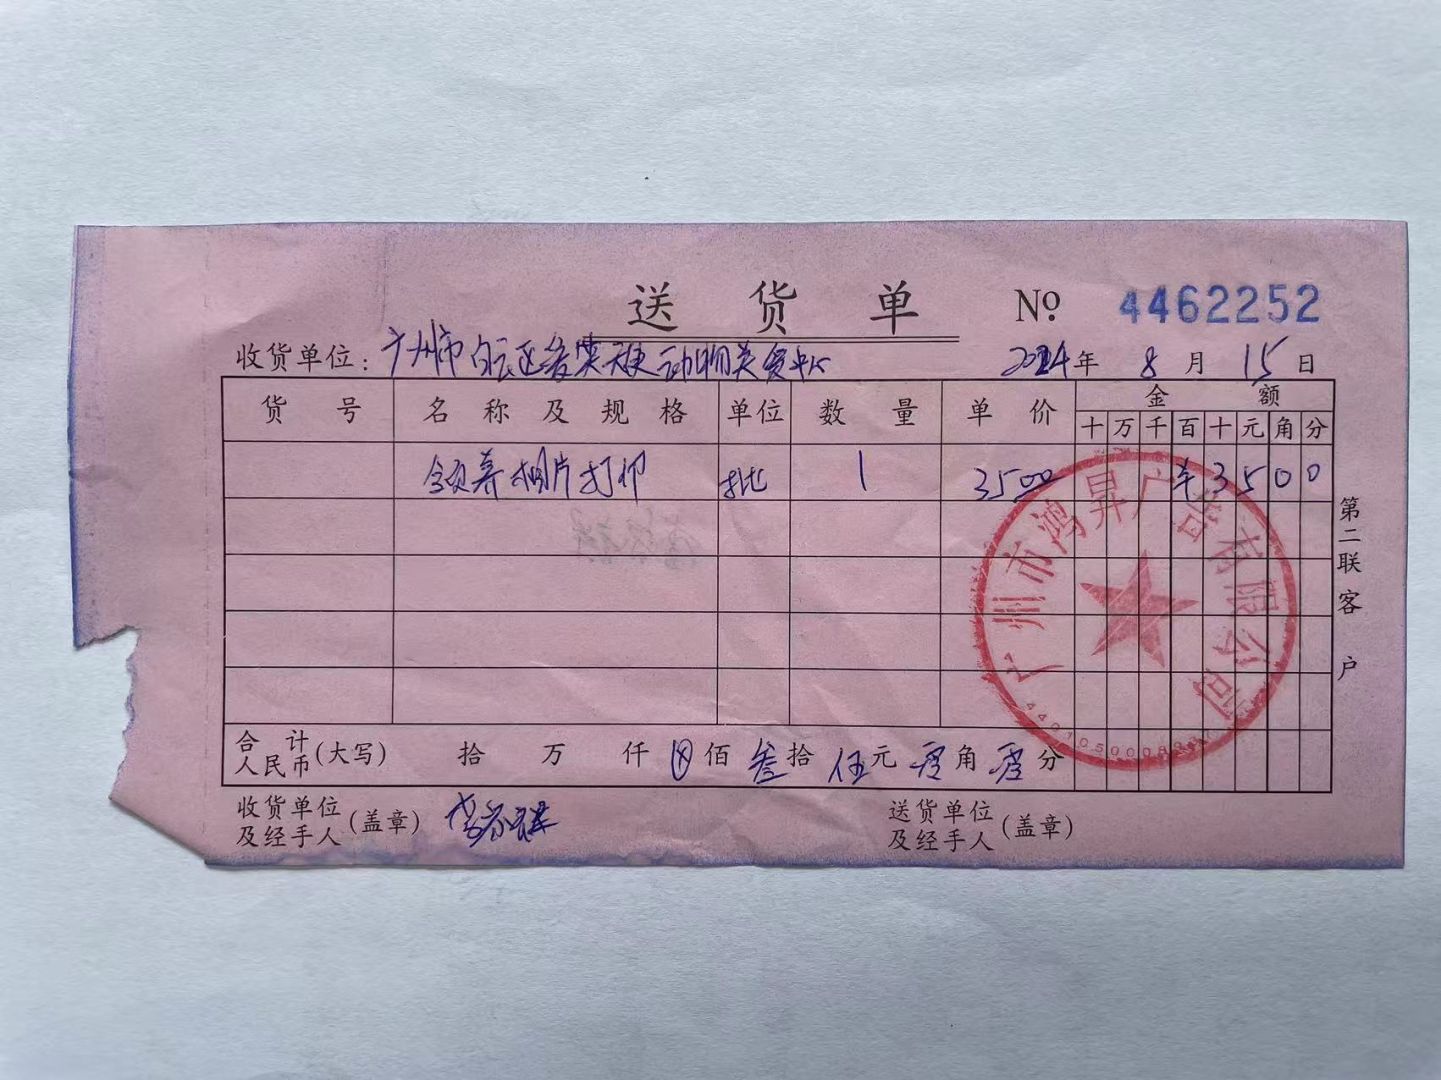 送货单 № 4462252
收货单位：广州市白云区善索天使动物关爱中心 2024年8月15日
货号 名称及规格 单位 数量 单价 金额
十 万 千 百 十 元 角 分
领养相片打印 批 1 35.00 ¥ 3 5 0 0
第二联客户
广州市鸿昇广告有限公司
合计人民币(大写) 拾 万 仟 ⊗ 佰 叁 拾 伍 元 零 角 零 分
收货单位及经手人(盖章) 送货单位及经手人(盖章)